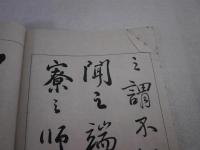 之謂不
聞之端
寮之師